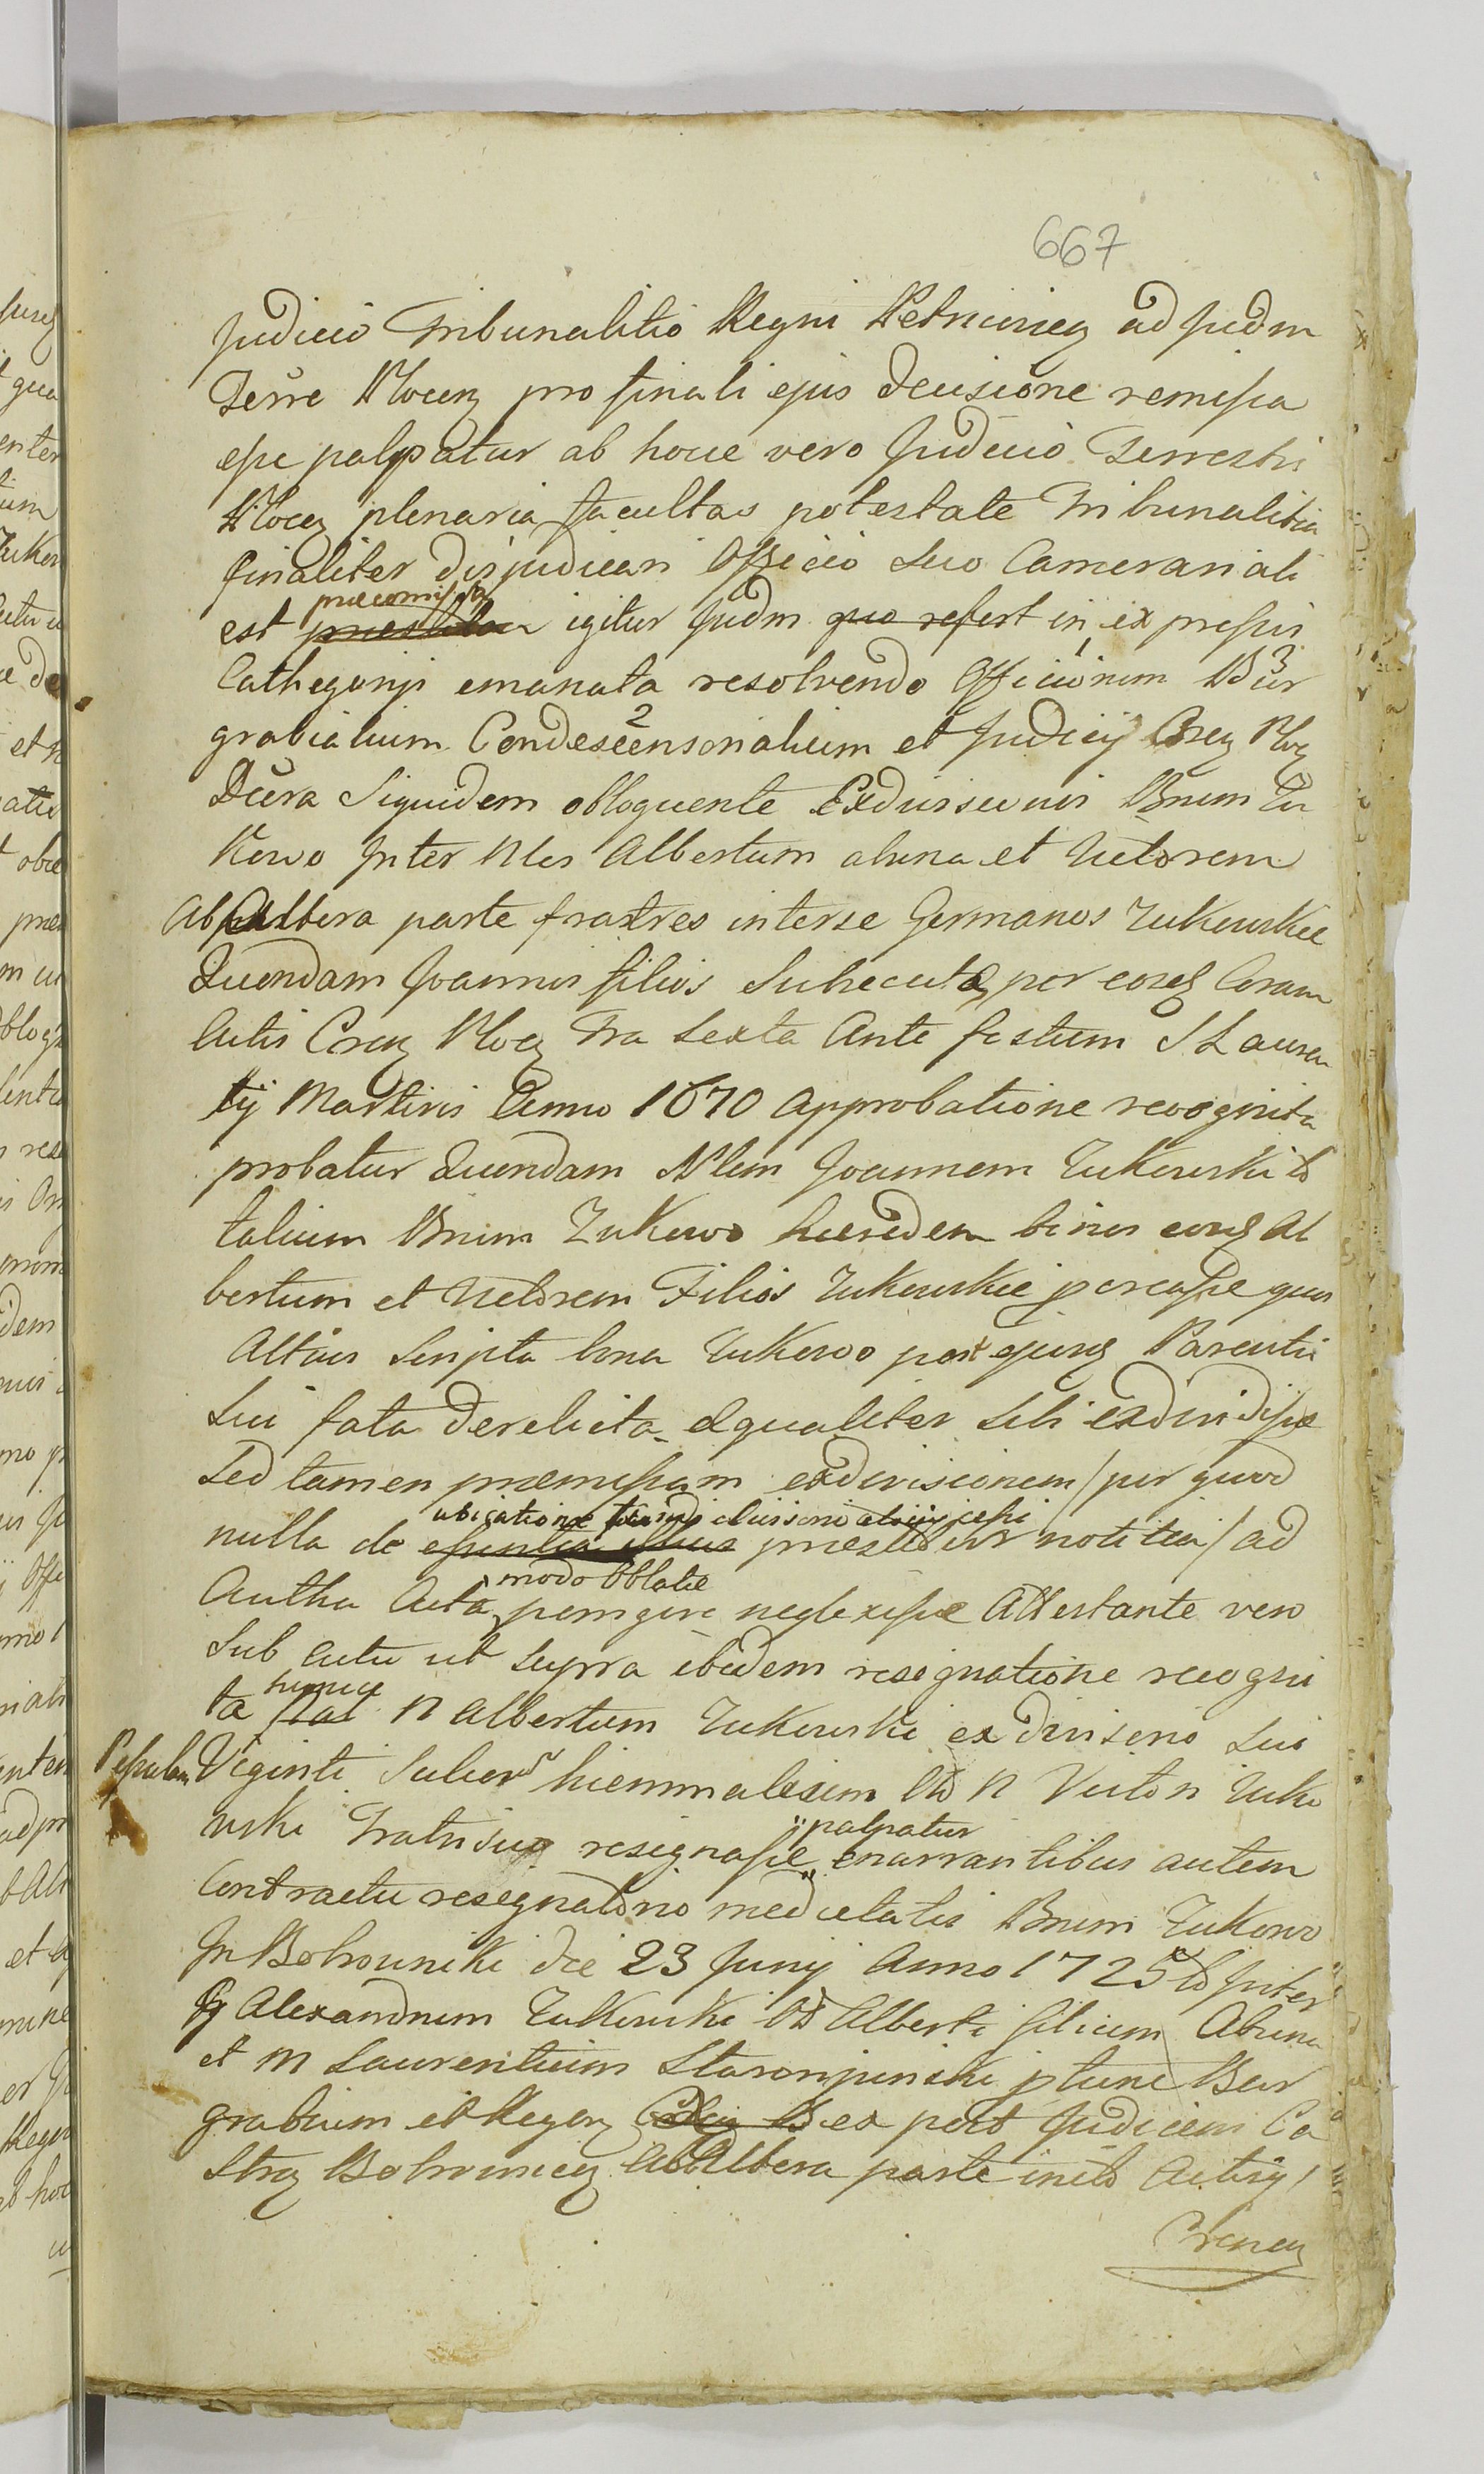 667
Judicio Tribunalitio Regni Petricoviey ad Judm
Terre Plocen pro finali ejus Decisione remissa
esse palpatur ab hocce vero Judicio Terrestri
Plocen plenaria facultas potestate Tribunalitia
finaliter disjudicari Officio suo Camerariali
est igitur Judm quo refert in expressis
Cathegorijs emanata resolvendo Officiorum 3 Bur
grabialium Condescensorialium 2 et Judicij Cren Ploc
Dura Siquidem obloquente Exdivisionis Bnrum Zu
Kowo Inter Nles Albertum ab una et Victorem
ab altera parte fratres interse Germanos Zukowskie
Quondam Joannis filios Subsecuta per eosq Coram
Actis Cren Plocen fra Sexta Ante festum S Lauren
tij Martiris Anno 1670 Approbatione recognita
probatur Quondam Nlem Joannem Zukowski to
talium Bnrum Zukowo haeredem binos eosq Al
bertum et Victorem Filios Zukowskie procreasse quos
Altius Scripta bona Zukowo post ejusq Parentis
Sui fata Derelicta aequaliter Sibi exdividisse
Sed tamen praemissam exdivisionem / per quod
ubicatione
nulla de notitia / ad
modo Oblatae
Autha Acta porrigere neglexisse Attestante vero
Sub actu ut Supra ibidem resignatione recogni
hunce
ta N Albertum Zukowski ex divisorio Suo
Viginti Sulcor hiemmalium Ito N Victori Zuko
palpatur
wski fratri suo resignasse enarrantibus autem
Contractu resignatorio medietatis Bnrum Zukowo
In Bobrowniki die 23 Junij Anno 1725to Inter
G Alexandrum Zukowski Alberti filium Ab una
et M Laurentium Staroripinski ptunc Bur
grabium et Regen ex post Judicem Ca
stren Bobrownicen ab Altera parte inito Actisq /
Crenen